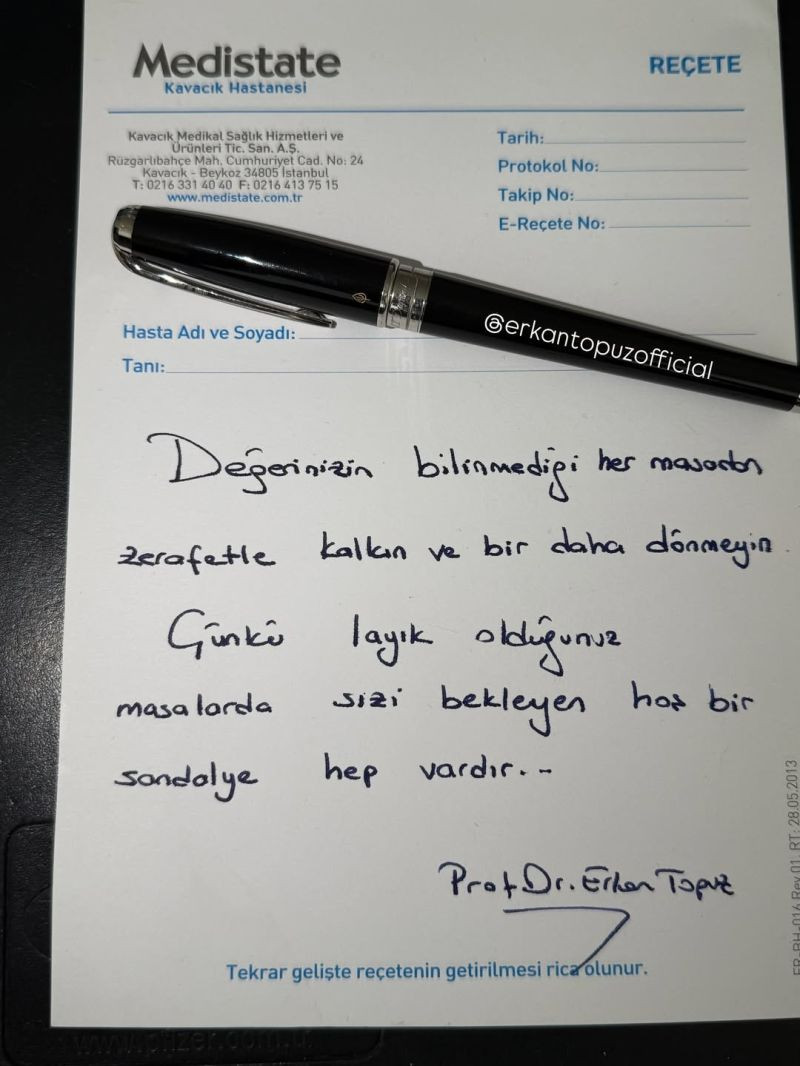 Medistate
Kavacık Hastanesi
REÇETE
Kavacık Medikal Sağlık Hizmetleri ve
Ürünleri Tic. San. A.Ş.
Rüzgarlıbahçe Mah. Cumhuriyet Cad. No: 24
Kavacık - Beykoz 34805 İstanbul
T: 0216 331 40 40 F: 0216 413 75 15
www.medistate.com.tr
Tarih:
Protokol No:
Takip No:
E-Reçete No:
@erkantopuzofficial
Hasta Adı ve Soyadı:
Tanı:
Değerinizin bilinmediği her masadan
zerafetle kalkın ve bir daha dönmeyin.
Çünkü layık olduğunuz
masalarda sizi bekleyen hoş bir
sandalye hep vardır...
Prof Dr. Erkan Topuz
Tekrar gelişte reçetenin getirilmesi rica olunur.
FR-BH-016 Rev.01 RT: 28.05.2013
www.pfizer.com.tr